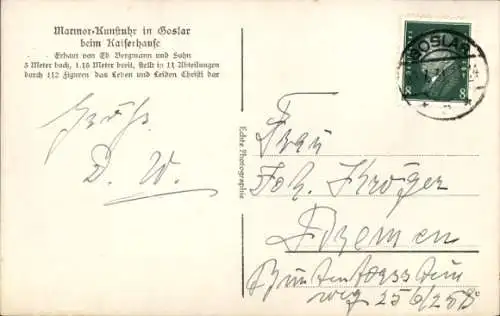 Marmor-Kunstuhr in Goslar
beim Kaiserhause
Erbaut von Ed. Bergmann und Sohn
3 Meter hoch, 1.16 Meter breit, stellt in 11 Abteilungen
durch 112 Figuren das Leben und Leiden Christi dar
Gruß.
D. W.
Echte Photographie
GOSLAR
8 8
Frau
Joh. Kröger
Bremen
Buntentorsstein
weg 256/258